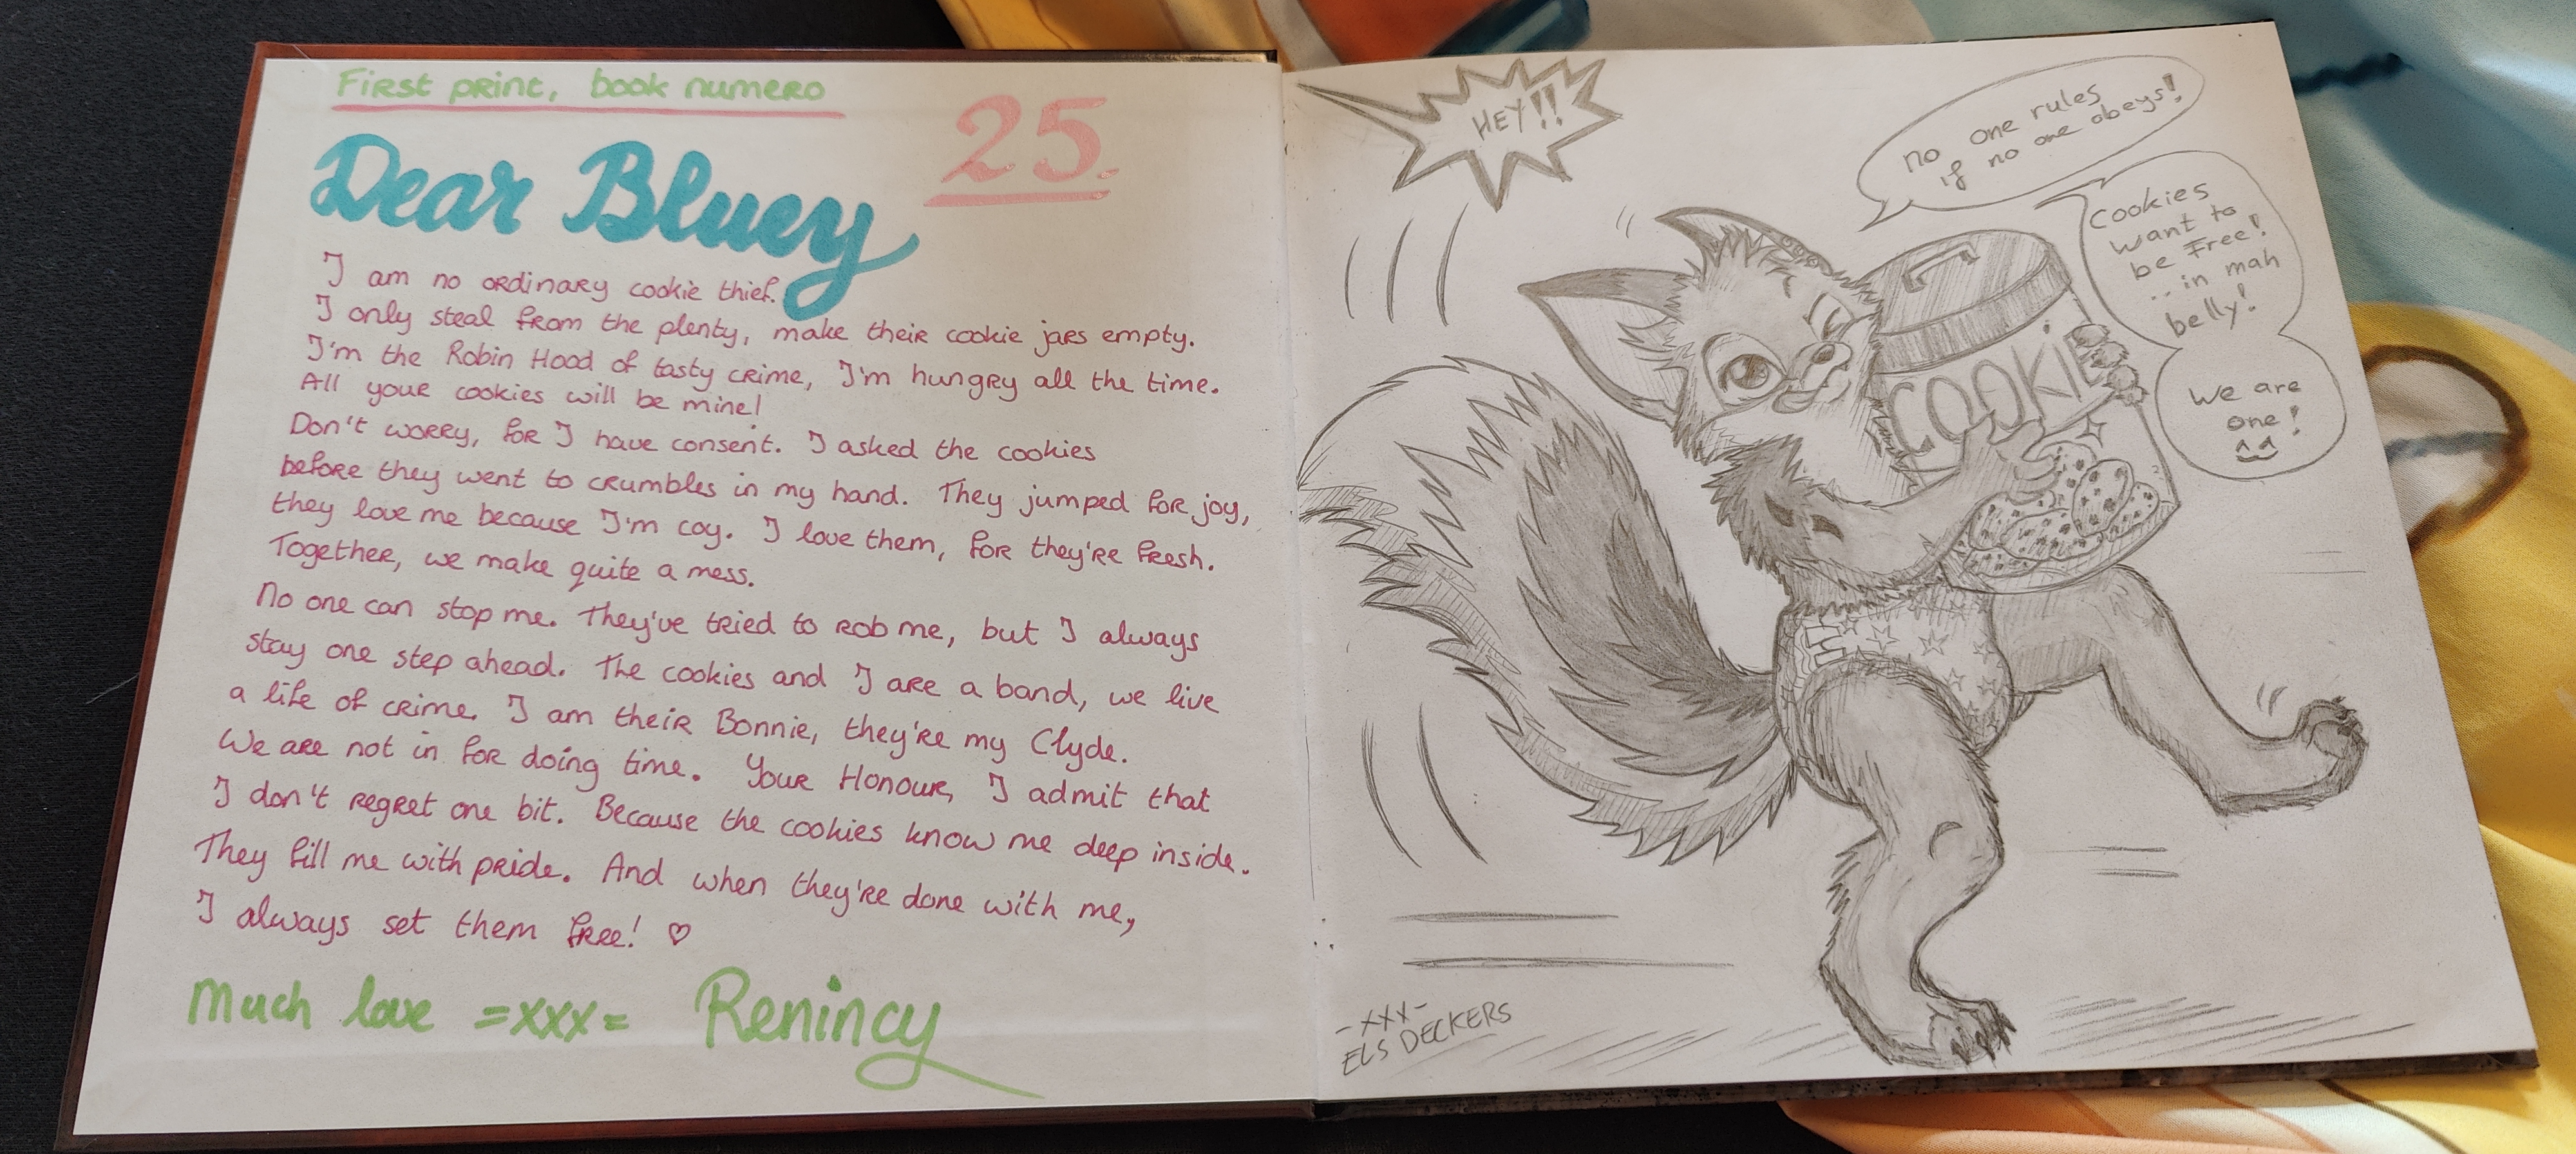 First print, book numero
25.
Dear Bluey
I am no ordinary cookie thief.
I only steal from the plenty, make their cookie jars empty.
I'm the Robin Hood of tasty crime, I'm hungry all the time.
All your cookies will be mine!
Don't worry, for I have consent. I asked the cookies
before they went to crumbles in my hand. They jumped for joy,
they love me because I'm coy. I love them, for they're fresh.
Together, we make quite a mess.
No one can stop me. They've tried to rob me, but I always
stay one step ahead. The cookies and I are a band, we live
a life of crime. I am their Bonnie, they're my Clyde.
We are not in for doing time. Your Honour, I admit that
I don't regret one bit. Because the cookies know me deep inside.
They fill me with pride. And when they're done with me,
I always set them free! ♡
Much love =xxx= Renincy
HEY!!
no one rules
if no one obeys!
Cookies
want to
be Free!
.. in mah
belly!
We are
one!
^‿^
COOKIE
-xxx-
ELS DECKERS